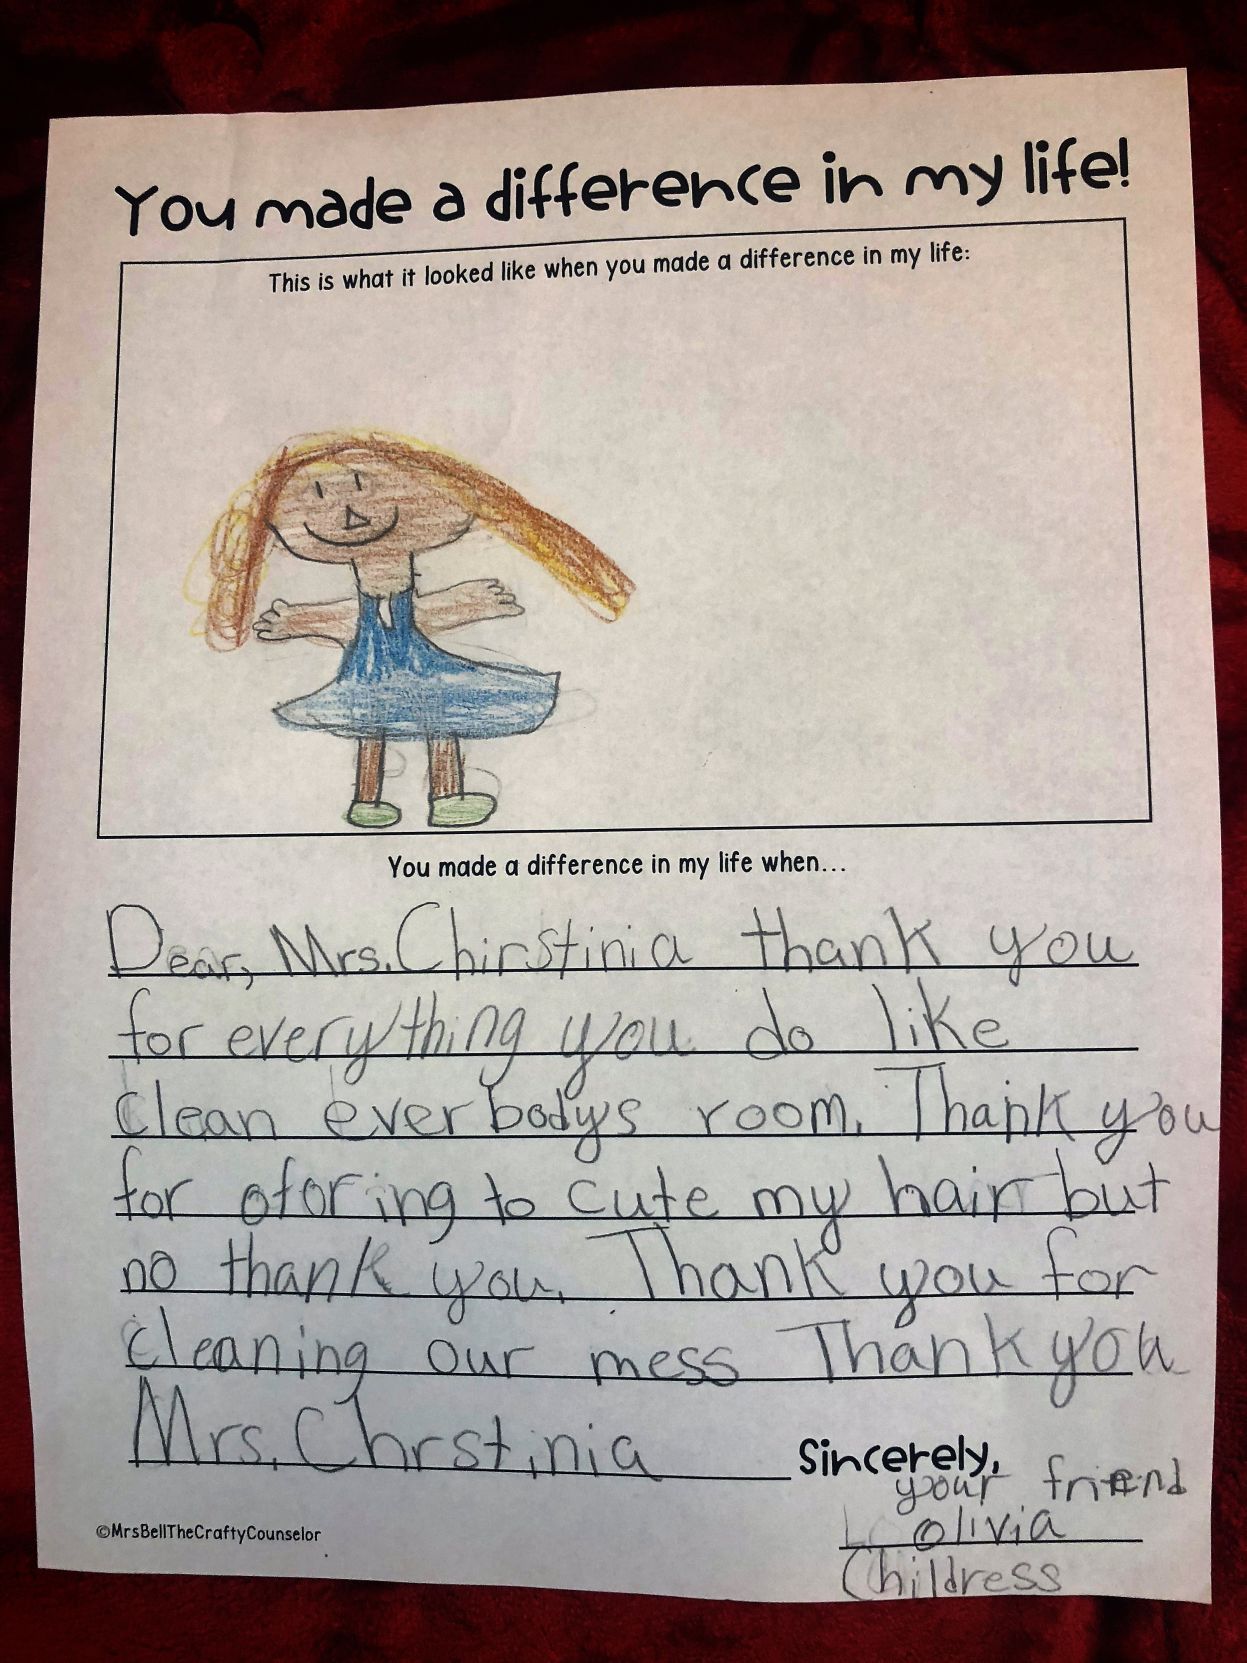 You made a difference in my life!
This is what it looked like when you made a difference in my life:
You made a difference in my life when...
Dear, Mrs. Chirstinia thank you
for everything you do like
clean everbodys room. Thank you
for oforing to cute my hair but
no thank you. Thank you for
cleaning our mess Thank you
Mrs. Chrstinia
Sincerely,
your friend
olivia
Childress
©MrsBellTheCraftyCounselor